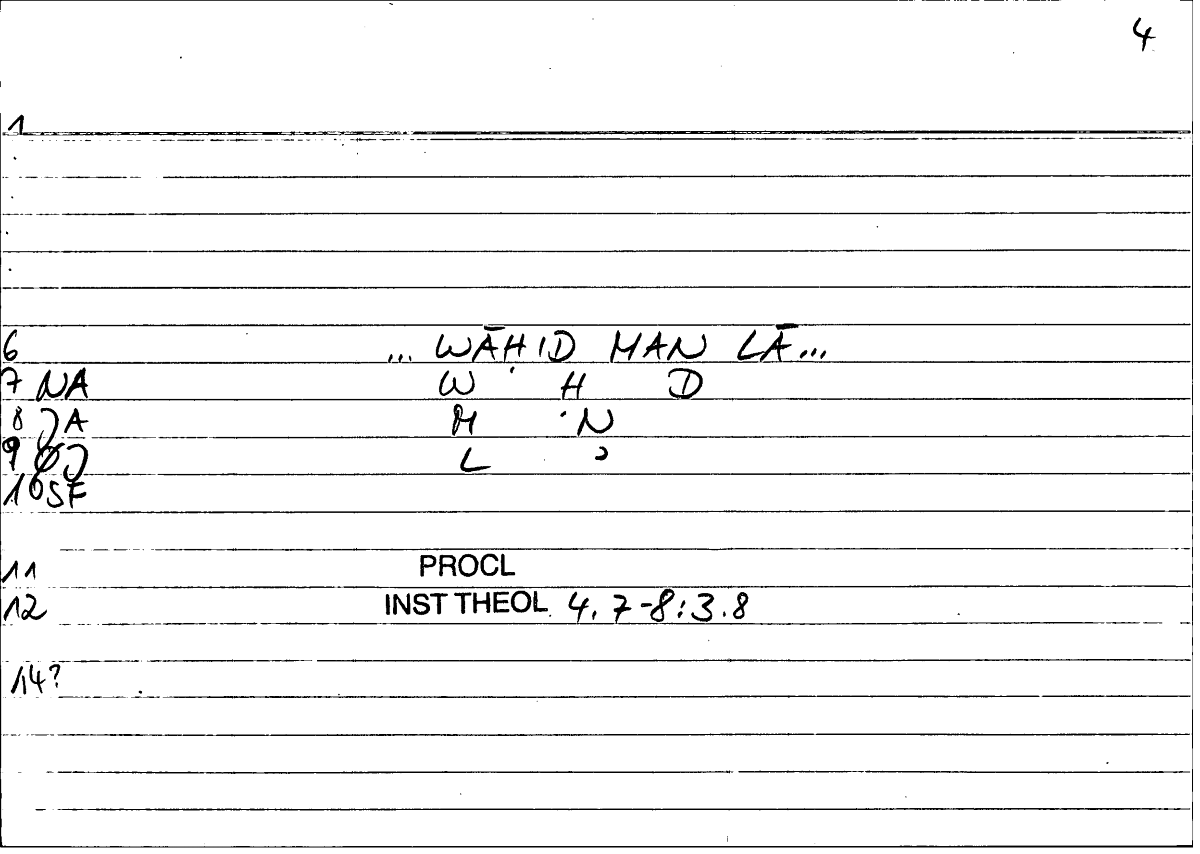 4
1
6 ... WĀḤID MAN LĀ...
7 NA W Ḥ D
8 JA M N
9 ØJ L ʾ
10 SF
11 PROCL
12 INST THEOL 4. 7-8:3.8
14?